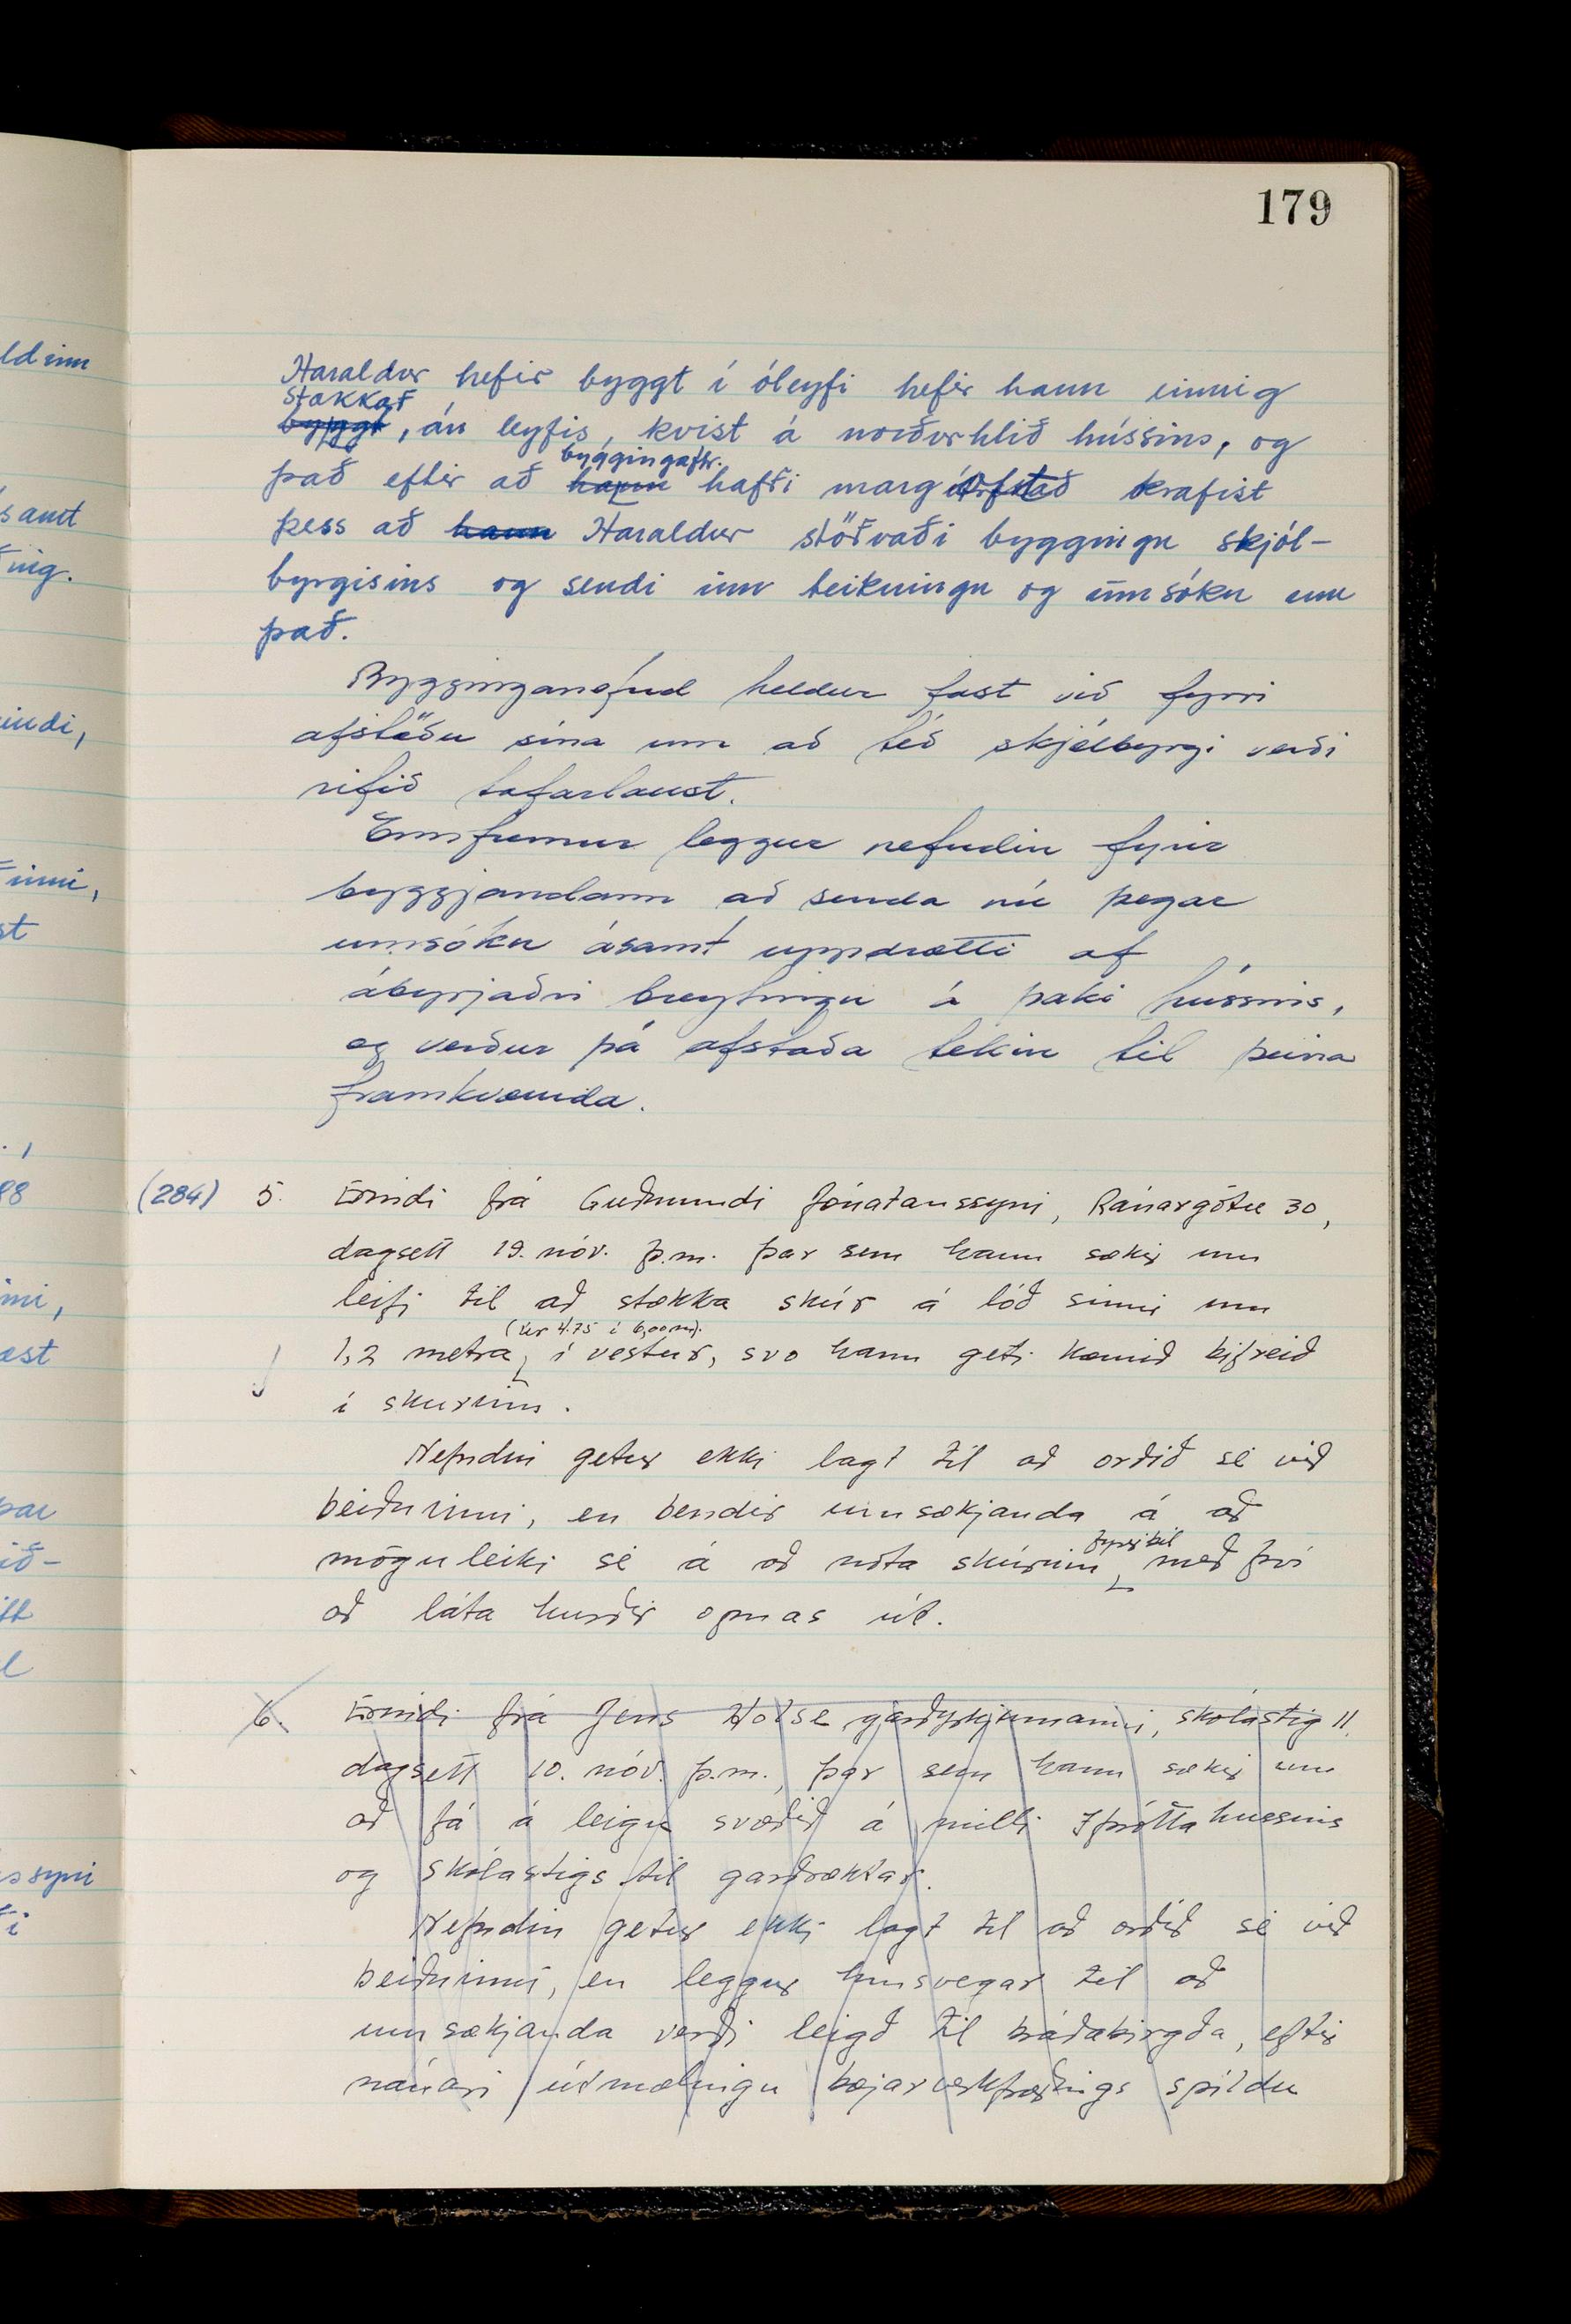 179
Haraldur hefir byggt í óleyfi hefir hann einnig
stækkað
byggt, án leyfis, kvist á norðurhlið hússins, og
byggingaftr.
það eftir að hann hafði marg krafist
þess að hann Haraldur stöðvaði byggingu skjól-
byrgisins og sendi inn teikningu og umsókn um
það.
Bygginganefnd heldur fast við fyrri
afstöðu sína um að téð skjólbyrgi verði
rifið tafarlaust.
Ennfremur leggur nefndin fyrir
byggjandann að senda nú þegar
umsókn ásamt uppdrætti af
ábyrjaðri breytingu á þaki hússins,
og verður þá afstaða tekin til þeirra
framkvæmda.
(284) 5. Erindi frá Guðmundi Jónatanssyni, Ránargötu 30,
dagsett 19. nóv. þ.m. þar sem hann sækir um
leifi til að stækka skúr á lóð sinni um
(úr 4.75 í 6,00 m).
1,2 metra, í vestur, svo hann geti komið bifreið
í skúrinn.
Nefndin getur ekki lagt til að orðið sé við
beiðninni, en bendir umsækjanda á að
fyrir bil
möguleiki sé á að nota skúrinn með því
að láta hurðir opnas út.
6. Erindi frá Jens Holse garðyrkjumanni, skólastig 11,
dagsett 10. nóv. þ.m., þar sem hann sækir um
að fá á leigu svæðið á milli Íþróttahússins
og Skólastigs til garðræktar.
Nefndin getur ekki lagt til að orðið sé við
beiðninni, en leggur hinsvegar til að
umsækjanda verði leigð til bráðabirgða, eftir
nánari útmælingu bæjarverkfræðings spildu